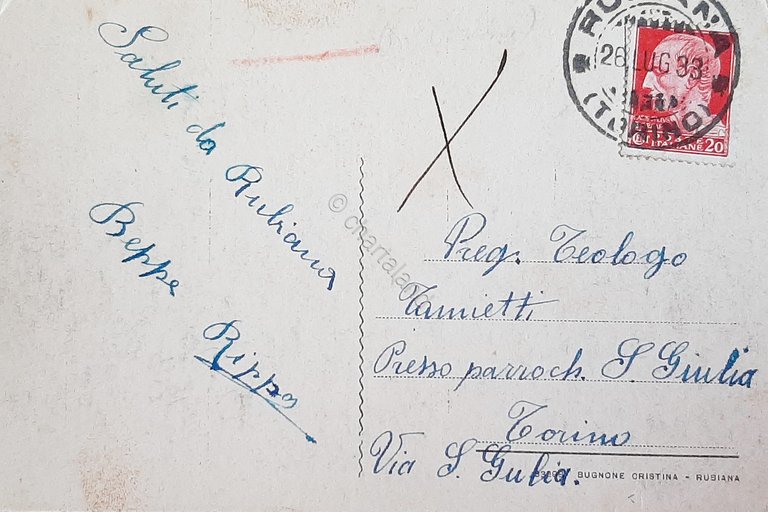 Saluti da Rubiana
Beppe
Rippa
RUBIANA
26 LUG 33
(TORINO)
POSTE ITALIANE 20
X
Preg. Teologo
Tamietti
Presso parroch. S Giulia
Torino
Via S. Gulia.
BUGNONE CRISTINA - RUBIANA
© chartaland